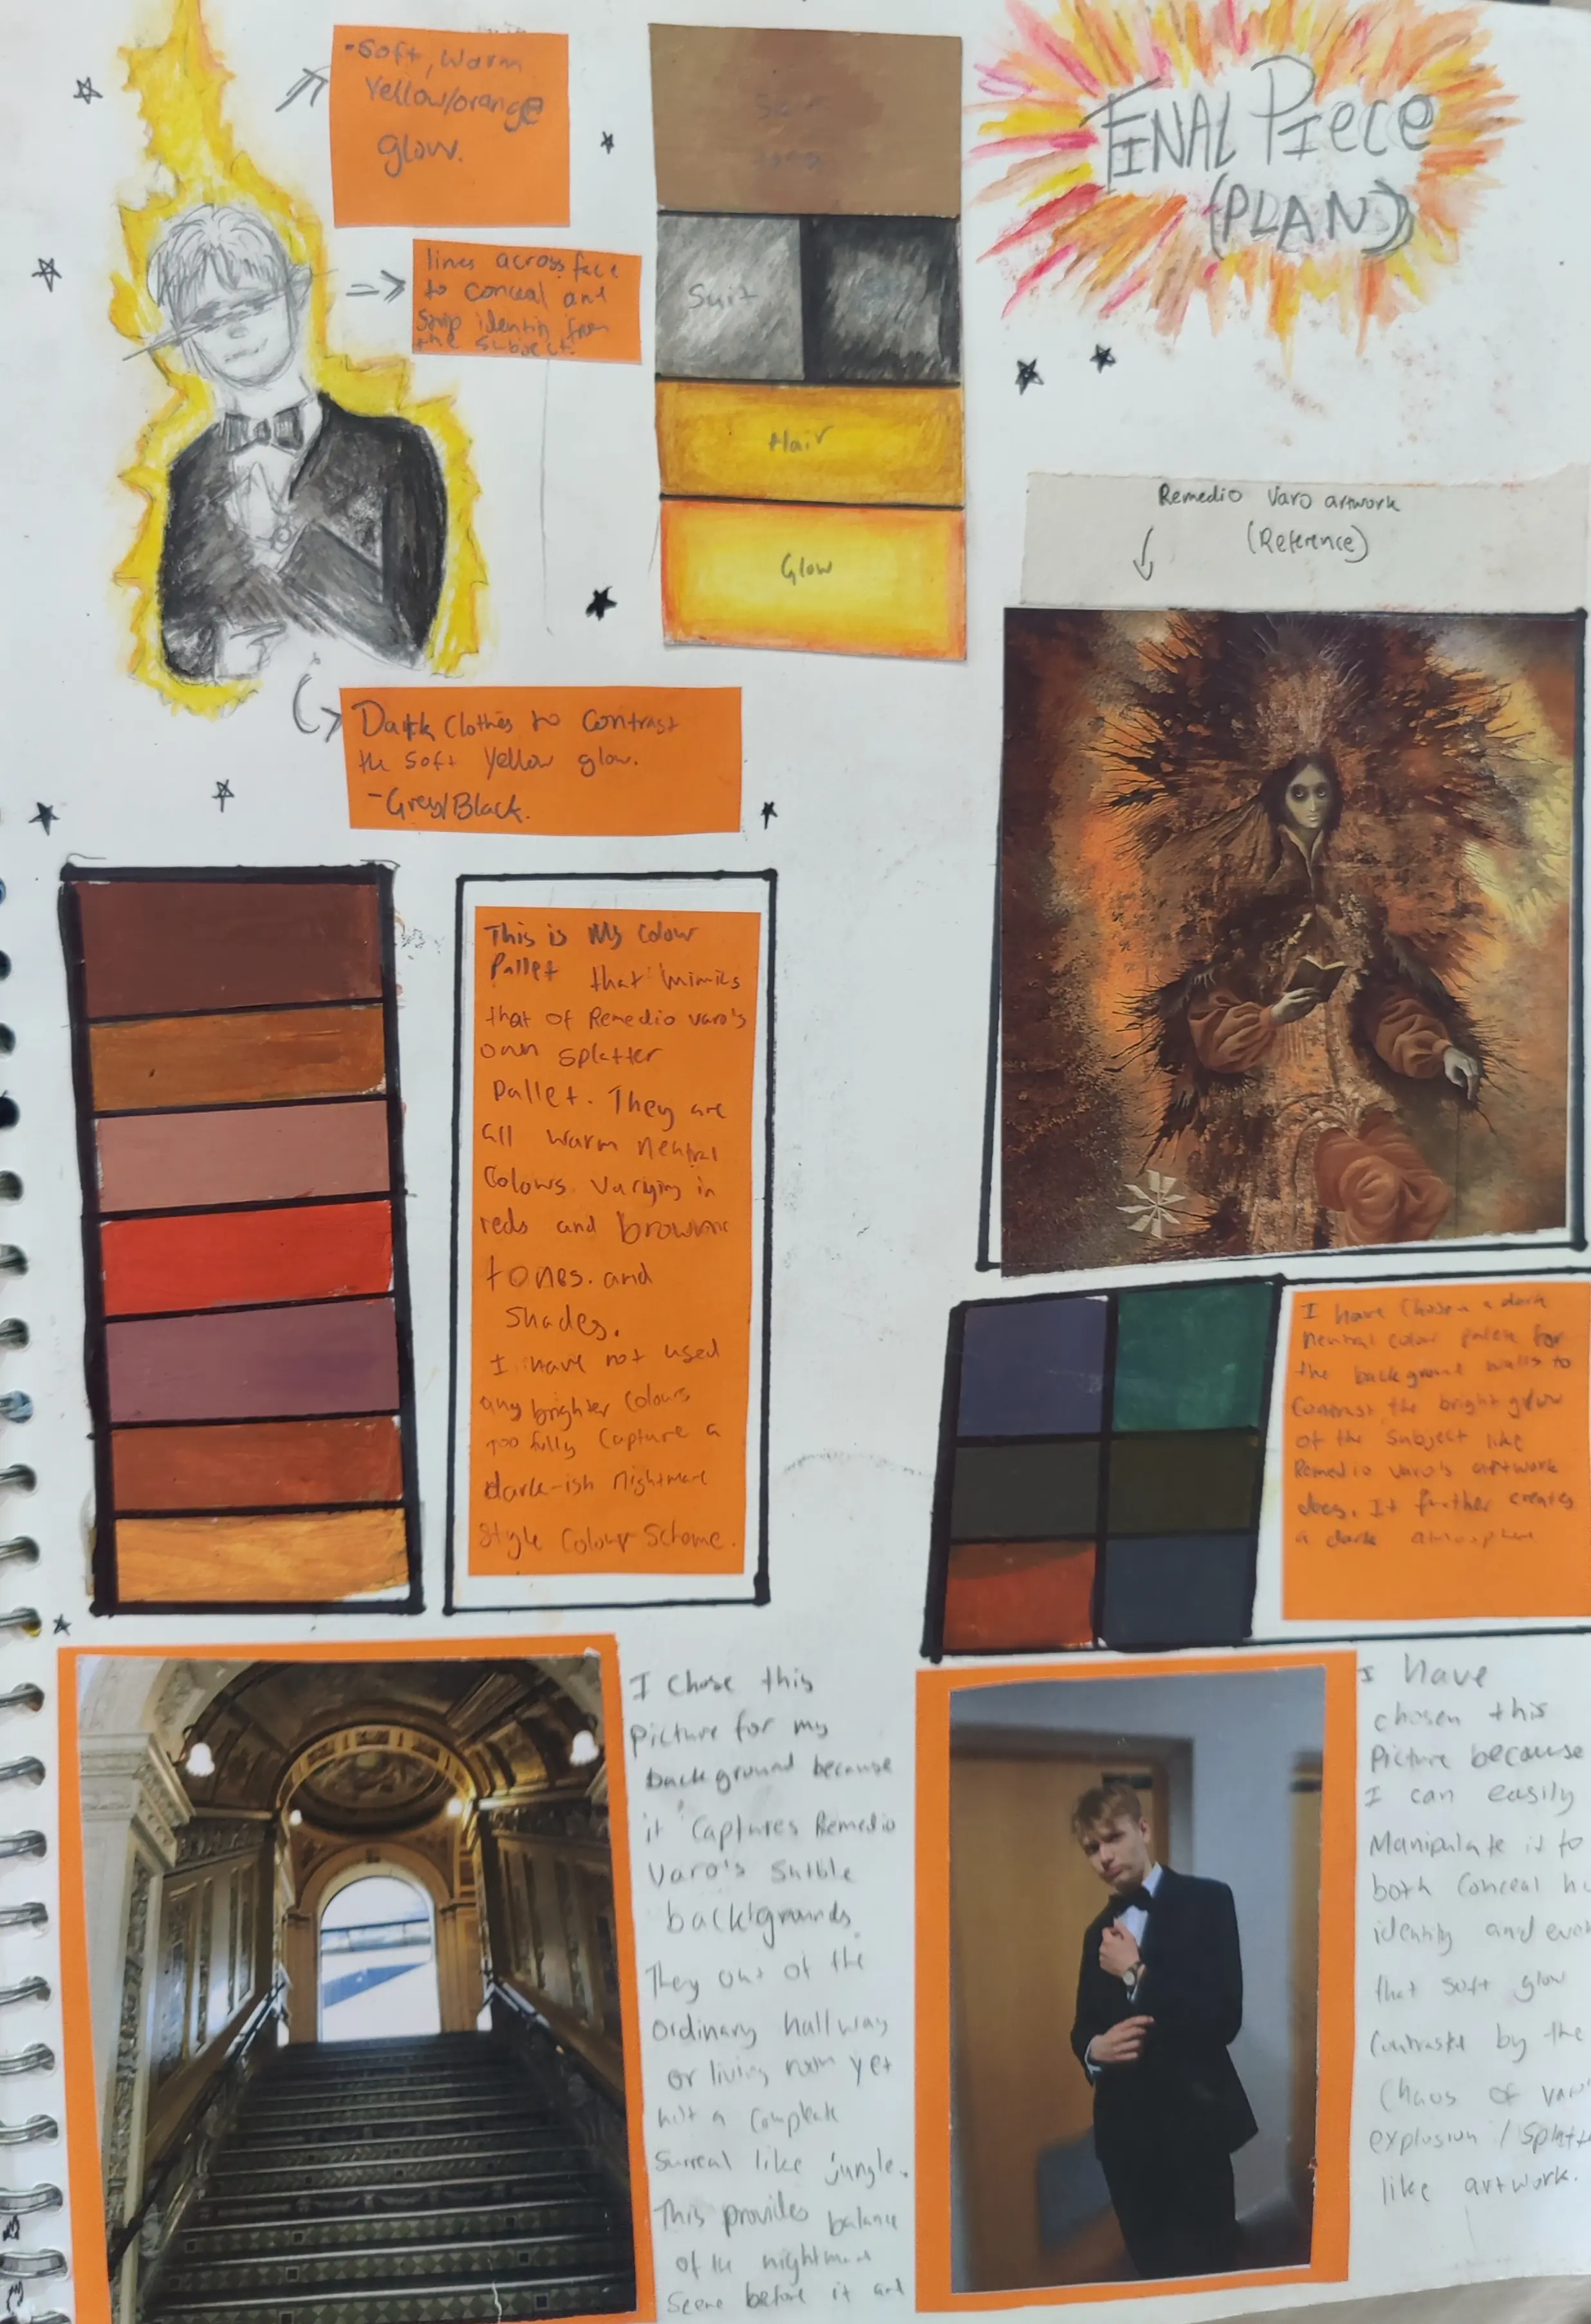 -Soft, Warm
Yellow/orange
glow.
lines across face
to conceal and
identity from
the subject.
Suit
Hair
Glow
Dark Clothes to Contrast
the soft yellow glow.
-Grey/Black.
FINAL PIECE
(PLAN)
Remedio Varo artwork
(Reference)
This is My Colour
Pallet that mimics
that of Remedio varo's
own splatter
pallet. They are
all warm neutral
Colours varying in
reds and
tones. and
shades.
I have not used
any brighter colours
too fully capture a
dark-ish nightmare
Style Colour Scheme.
I have Chosen a dark
neutral color palete for
the background walls to
Contrast the bright glow
of the subject like
Remedio varo's artwork
does. It further creates
a dark
I chose this
Picture for my
background because
it Captures Remedio
Varo's
backgrounds.
They of the
ordinary hallway
or living room yet
a
Surreal like jungle.
This provides balance
of the
Scene before it and
I have
chosen this
Picture because
I can easily
Manipulate it to
both Conceal
identity and
that soft glow
by the
Chaos of
explosion /
like artwork.